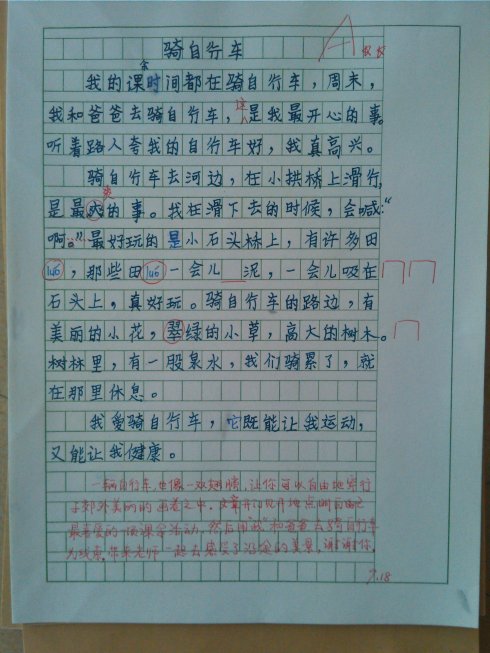 骑自行车
A
我的课余时间都在骑自行车，周末，
我和爸爸去骑自行车，这是我最开心的事。
听着路人夸我的自行车好，我真高兴。
骑自行车去河边，在小拱桥上滑行，
是最爽的事。我在滑下去的时候，会喊：“
啊。”最好玩的是小石头桥上，有许多田
luó，那些田luó一会儿泥，一会儿吸在
石头上，真好玩。骑自行车的路边，有
美丽的小花，翠绿的小草，高大的树木。
树林里，有一股泉水，我们骑累了，就
在那里休息。
我爱骑自行车，它既能让我运动，
又能让我健康。
一辆自行车，也像一双翅膀，让你可以自由地穿行
于郊外美丽的画卷之中，文章开门见山地点明自己
最喜爱的一项课余活动，然后用“我”和爸爸去骑自行车
为线索，带着老师一起去感受了沿途的美景，谢谢你。
9.18